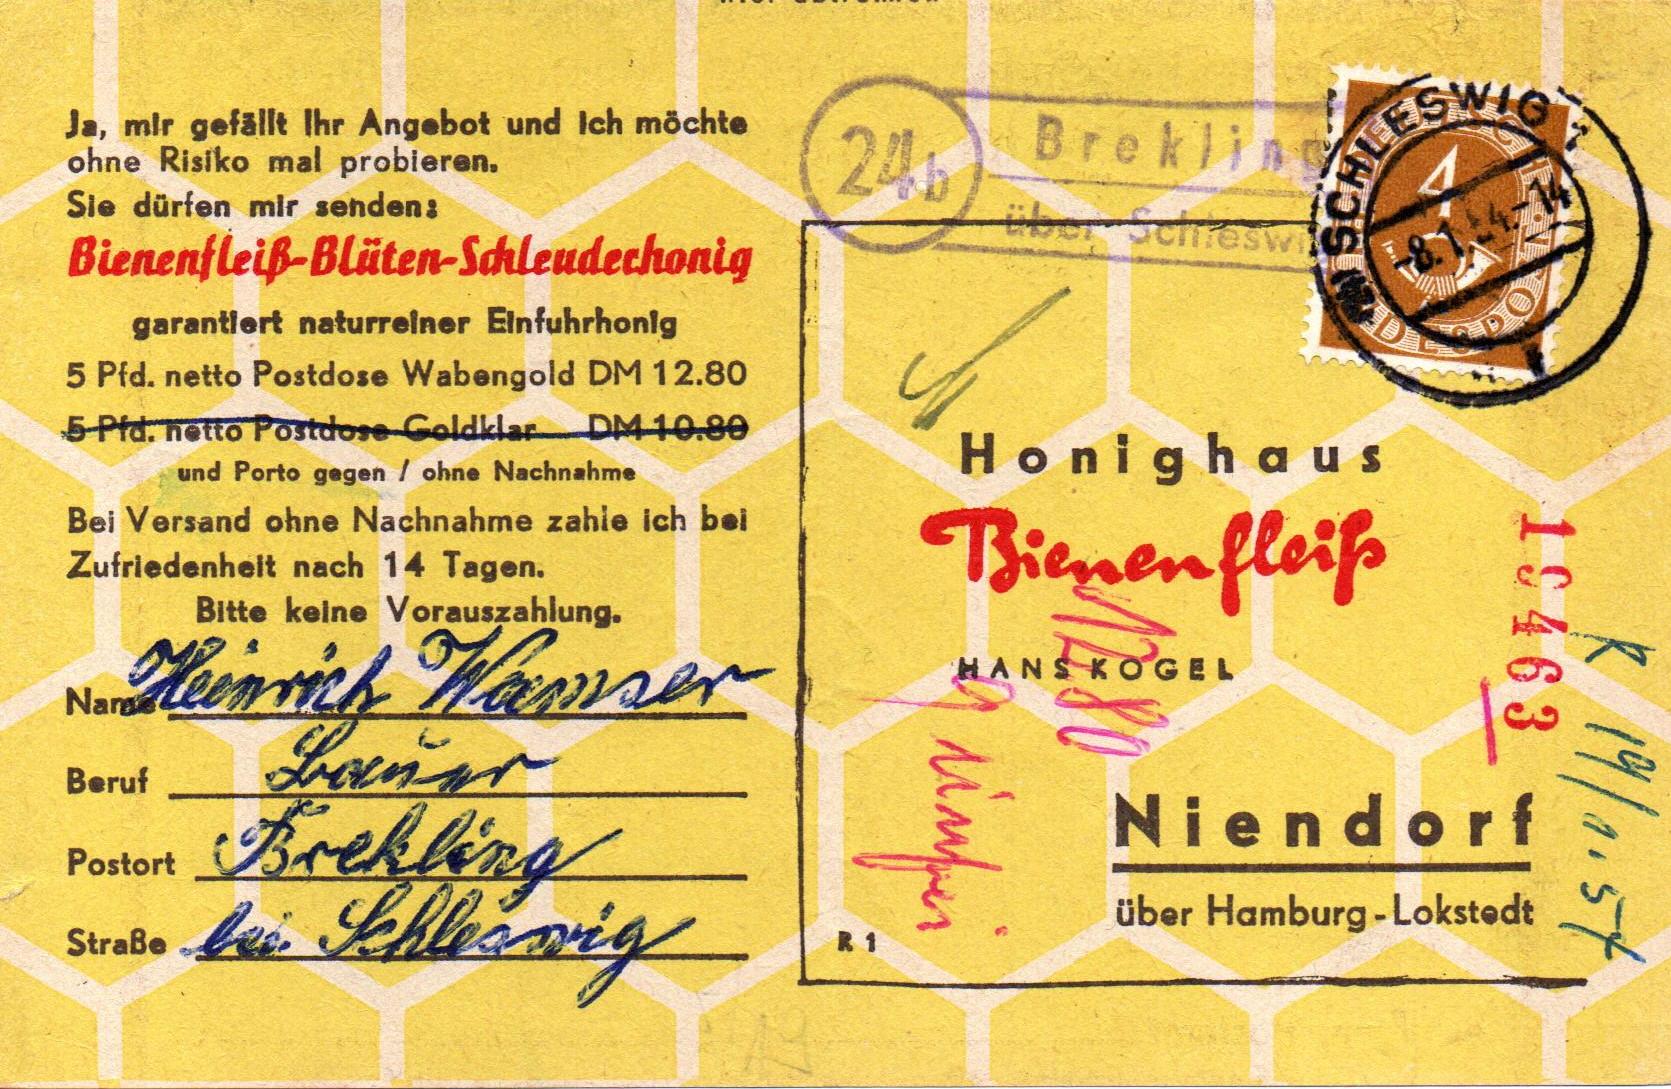 hier abtrennen
Ja, mir gefällt Ihr Angebot und ich möchte
ohne Risiko mal probieren.
Sie dürfen mir senden:
Bienenfleiß-Blüten-Schleuderhonig
garantiert naturreiner Einfuhrhonig
5 Pfd. netto Postdose Wabengold DM 12.80
5 Pfd. netto Postdose Goldklar DM 10.80
und Porto gegen / ohne Nachnahme
Bei Versand ohne Nachnahme zahle ich bei
Zufriedenheit nach 14 Tagen.
Bitte keine Vorauszahlung.
Name Heinrich Wamser
Beruf Bauer
Postort Brekling
Straße bei Schleswig
24b
Brekling
über Schleswi
SCHLESWIG 1
-8.1.54.-14
4
Honighaus
Bienenfleiß
HANS KOGEL
12.80
Niendorf
über Hamburg-Lokstedt
R 1
19463